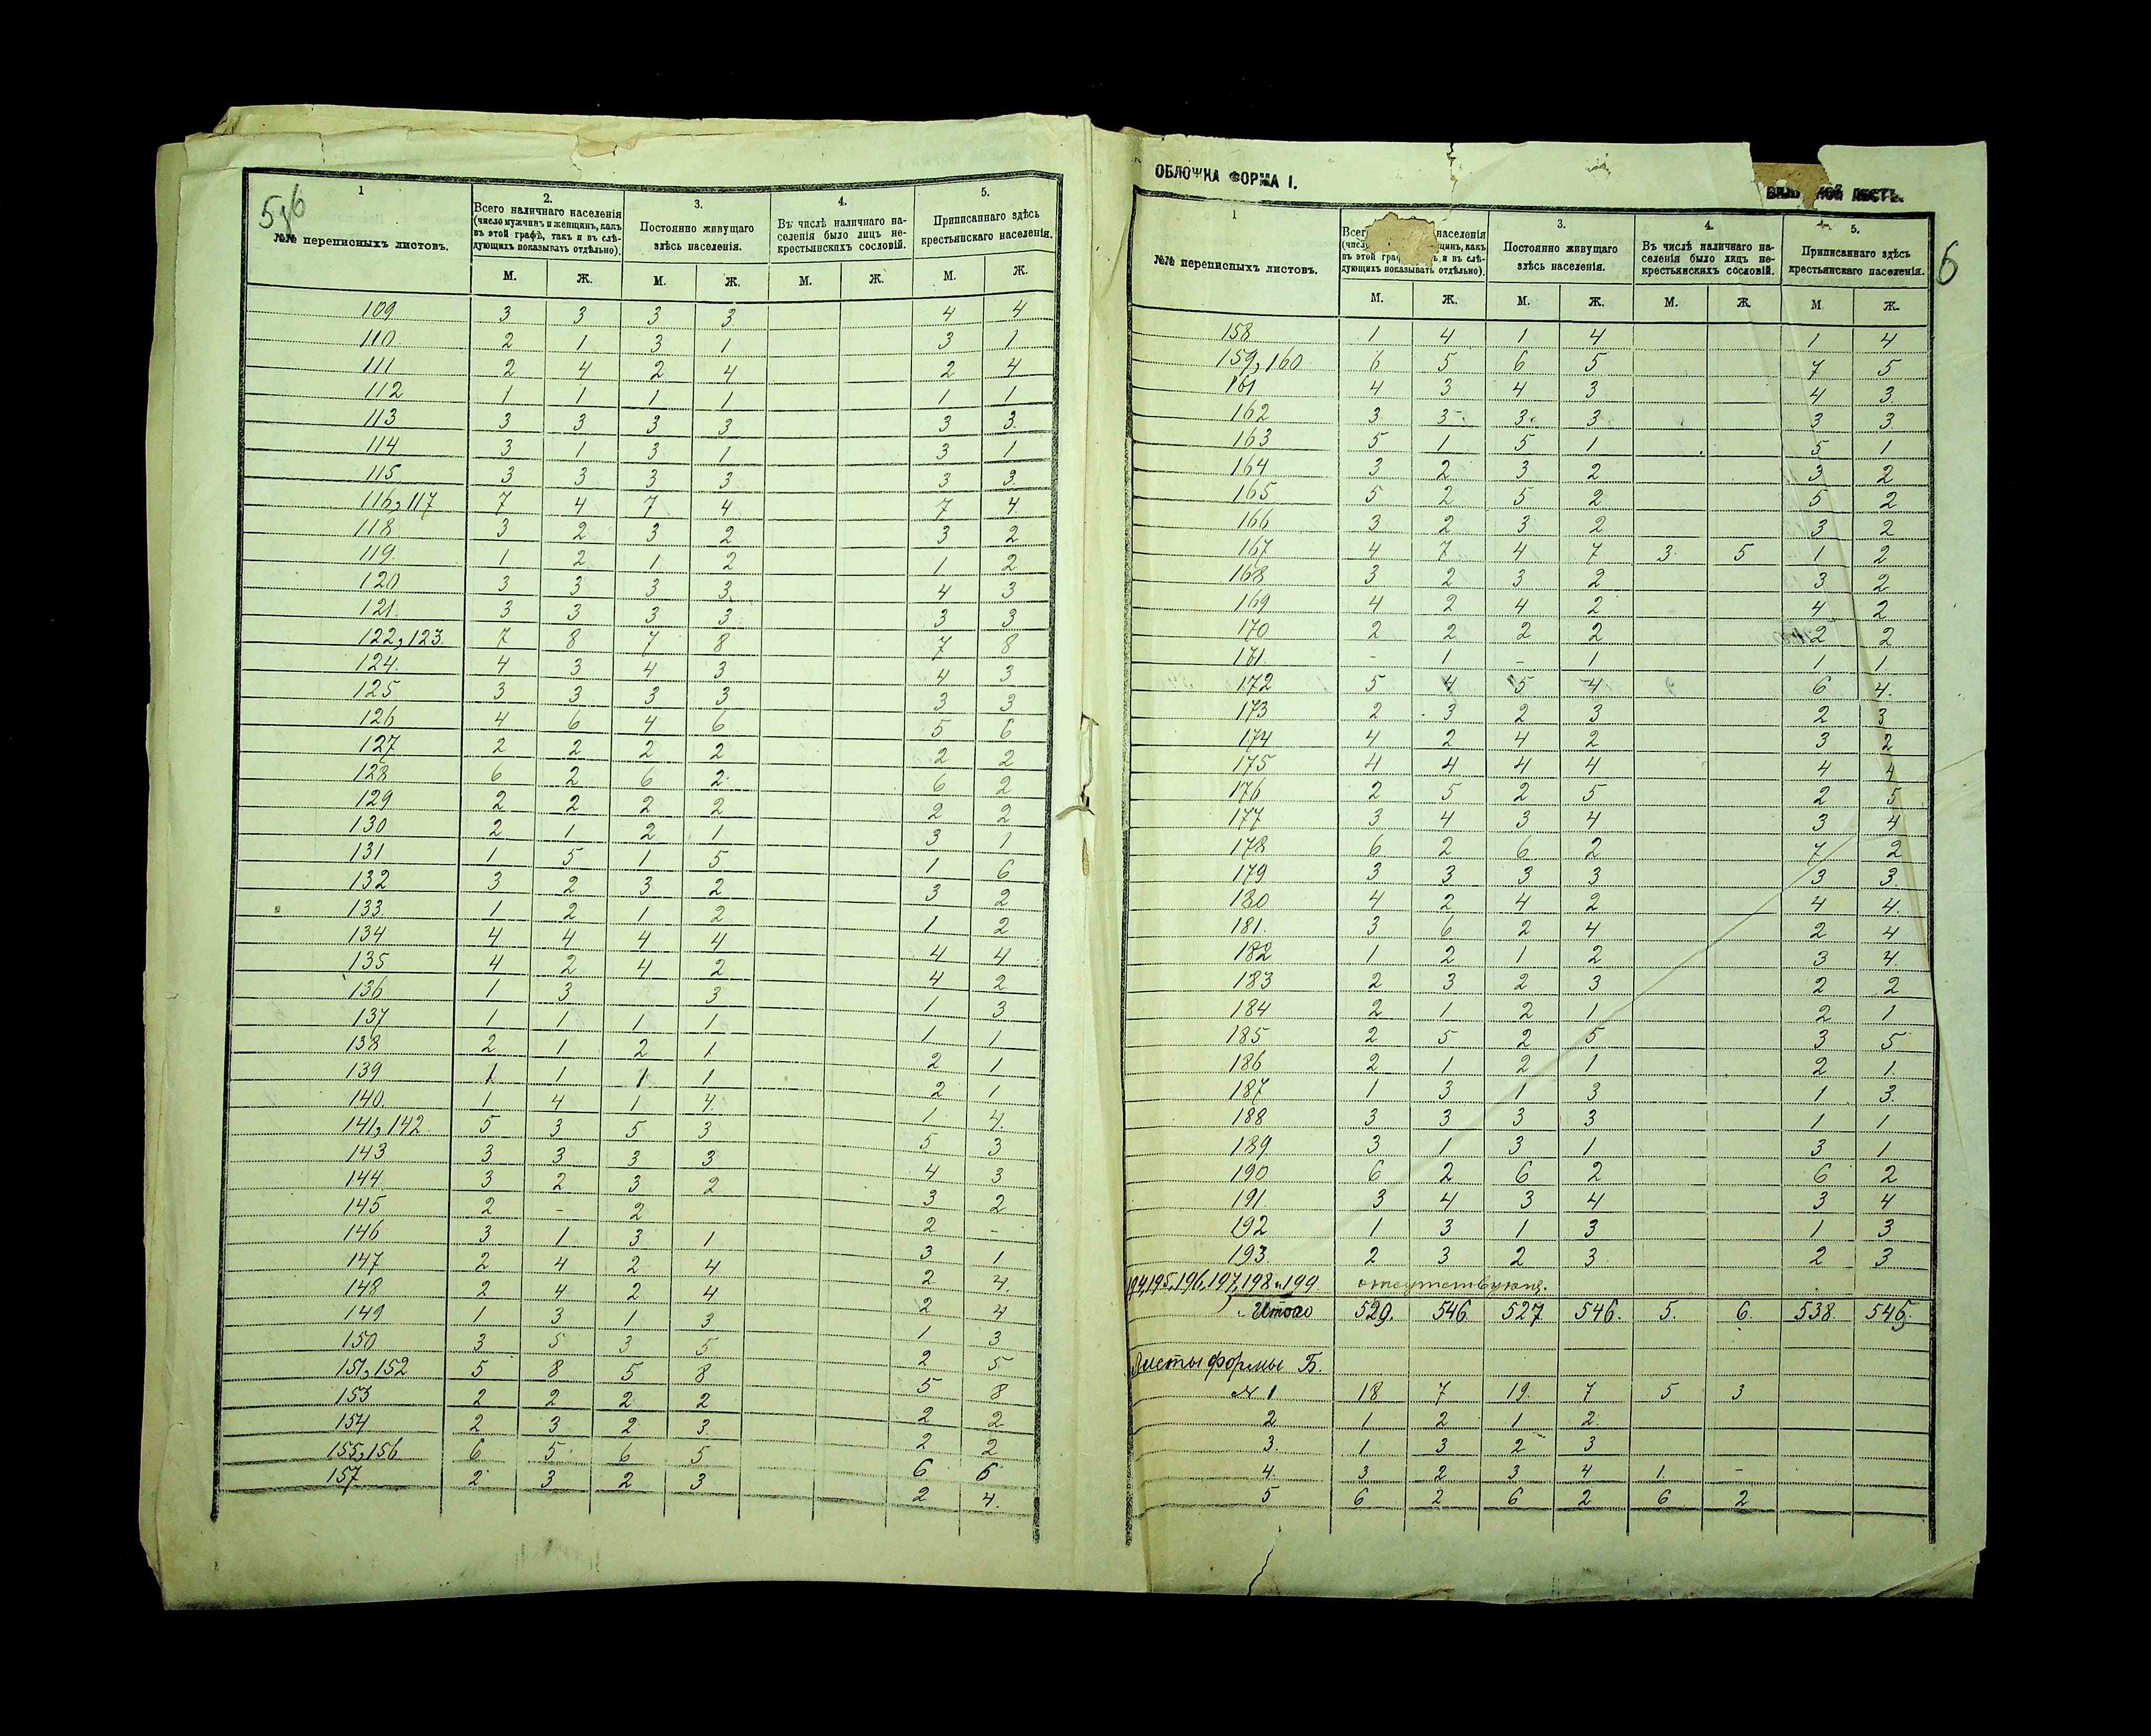 5 об
1 2. 3. 4. 5.
№№ переписныхъ листовъ. Всего наличнаго населенія (число мужчинъ и женщинъ, какъ въ этой графѣ, такъ и въ слѣдующихъ показывать отдѣльно). Постоянно живущаго здѣсь населенія. Въ числѣ наличнаго населенія было лицъ некрестьянскихъ сословій. Приписаннаго здѣсь крестьянскаго населенія.
М. Ж. М. Ж. М. Ж. М. Ж.
109 3 3 3 3 4 4
110 2 1 3 1 3 1
111 2 4 2 4 2 4
112 1 1 1 1 1 1
113 3 3 3 3 3 3
114 3 1 3 1 3 1
115 3 3 3 3 3 3
116, 117 7 4 7 4 7 4
118 3 2 3 2 3 2
119. 1 2 1 2 1 2
120 3 3 3 3 4 3
121. 3 3 3 3 3 3
122, 123. 7 8 7 8 7 8
124. 4 3 4 3 4 3
125 3 3 3 3 3 3
126 4 6 4 6 5 6
127 2 2 2 2 2 2
128 6 2 6 2 6 2
129 2 2 2 2 2 2
130 2 1 2 1 3 1
131 1 5 1 5 1 6
132 3 2 3 2 3 2
133 1 2 1 2 1 2
134 4 4 4 4 4 4
135 4 2 4 2 4 2
136 1 3 3 1 3
137 1 1 1 1 1 1
138 2 1 2 1 2 1
139 1 1 1 1 2 1
140. 1 4 1 4 1 4.
141, 142 5 3 5 3 5 3
143 3 3 3 3 4 3
144 3 2 3 2 3 2
145 2 - 2 2 -
146 3 1 3 1 3 1
147 2 4 2 4 2 4.
148 2 4 2 4 2 4
149 1 3 1 3 1 3
150 3 5 3 5 2 5
151, 152 5 8 5 8 5 8
153 2 2 2 2 2 2
154 2 3 2 3. 2 2
155, 156 6 5 6 5 6 6
157 2 3 2 3 2 4.
ОБЛОЖКА ФОРМА I.
6
1 3. 4. 5.
№№ переписныхъ листовъ. населенія въ этой и въ слѣдующихъ показывать отдѣльно). Постоянно живущаго здѣсь населенія. Въ числѣ наличнаго населенія было лицъ некрестьянскихъ сословій. Приписаннаго здѣсь крестьянскаго населенія.
М. Ж. М. Ж. М. Ж. М Ж.
158 1 4 1 4 1 4
159, 160 6 5 6 5 7 5
161 4 3 4 3 4 3
162 3 3 3 3 3 3
163 5 1 5 1 5 1
164 3 2 3 2 3 2
165 5 2 5 2 5 2
166 3 2 3 2 3 2
167 4 7 4 7 3 5 1 2
168 3 2 3 2 3 2
169 4 2 4 2 4 2
170 2 2 2 2 2 2
171. - 1 - 1 1 1
172 5 4 5 4 6 4.
173 2 3 2 3 2 3
174 4 2 4 2 3 2
175 4 4 4 4 4 4
176 2 5 2 5 2 5
177 3 4 3 4 3 4
178 6 2 6 2 7 2
179 3 3 3 3 3 3.
180 4 2 4 2 4 4.
181. 3 6 2 4 2 4
182 1 2 1 2 3 4.
183 2 3 2 3 2 2
184 2 1 2 1 2 1
185 2 5 2 5 3 5
186 2 1 2 1 2 1.
187 1 3 1 3 1 3.
188 3 3 3 3 1 1
189 3 1 3 1 3 1
190 6 2 6 2 6 2
191 3 4 3 4 3 4
192 1 3 1 3 1 3
193 2 3 2 3 2 3
194, 195, 196, 197, 198 и 199 отсутствующ.
Итого 529. 546. 527 546. 5. 6. 538 545.
Листы формы Б.
№ 1 18 7 19 7 5 3
2 1 2 1 2
3. 1 3 2 3
4. 3 2 3 4 1 -
5 6 2 6 2 6 2